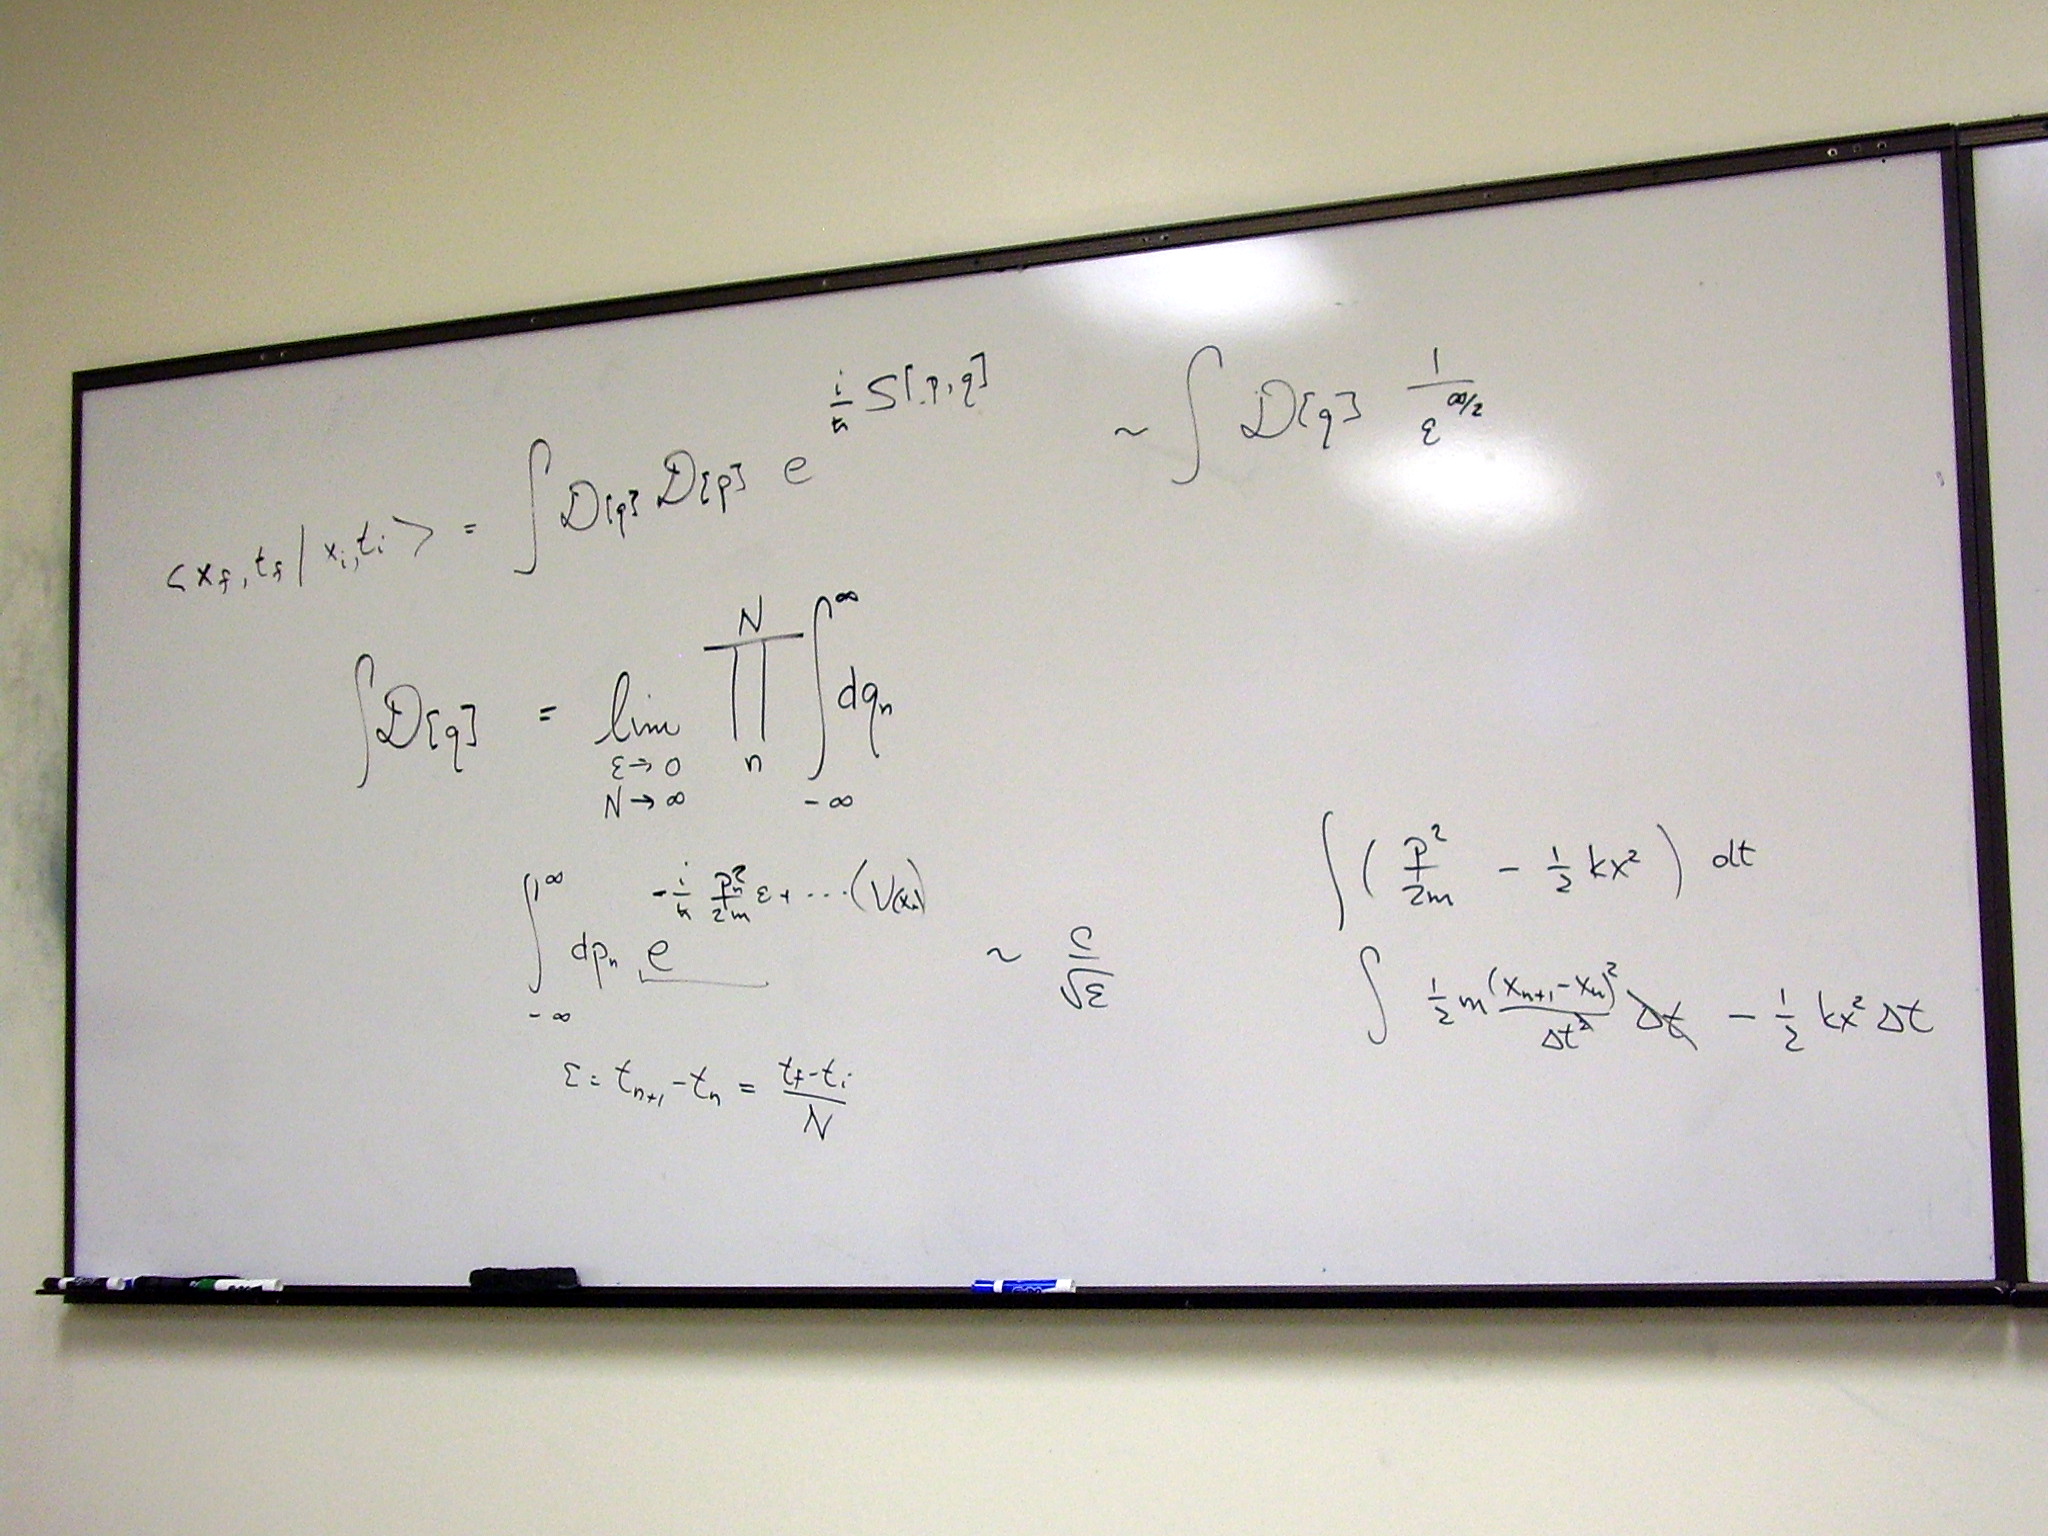 <x_f, t_f | x_i, t_i> = ∫ D[q] D[p] e^{i/ħ S[p,q]} ~ ∫ D[q] 1/ε^{∞/2}
∫ D[q] = lim_{ε→0, N→∞} ∏_n^N ∫_{-∞}^{∞} dq_n
∫_{-∞}^{∞} dp_n e^{-i/ħ p_n^2/2m ε + ··· (V(x_n))} ~ C/√ε
ε = t_{n+1} - t_n = (t_f - t_i)/N
∫ ( p^2/2m - 1/2 kx^2 ) dt
∫ 1/2 m (x_{n+1} - x_n)^2/Δt^2 Δt - 1/2 kx^2 Δt